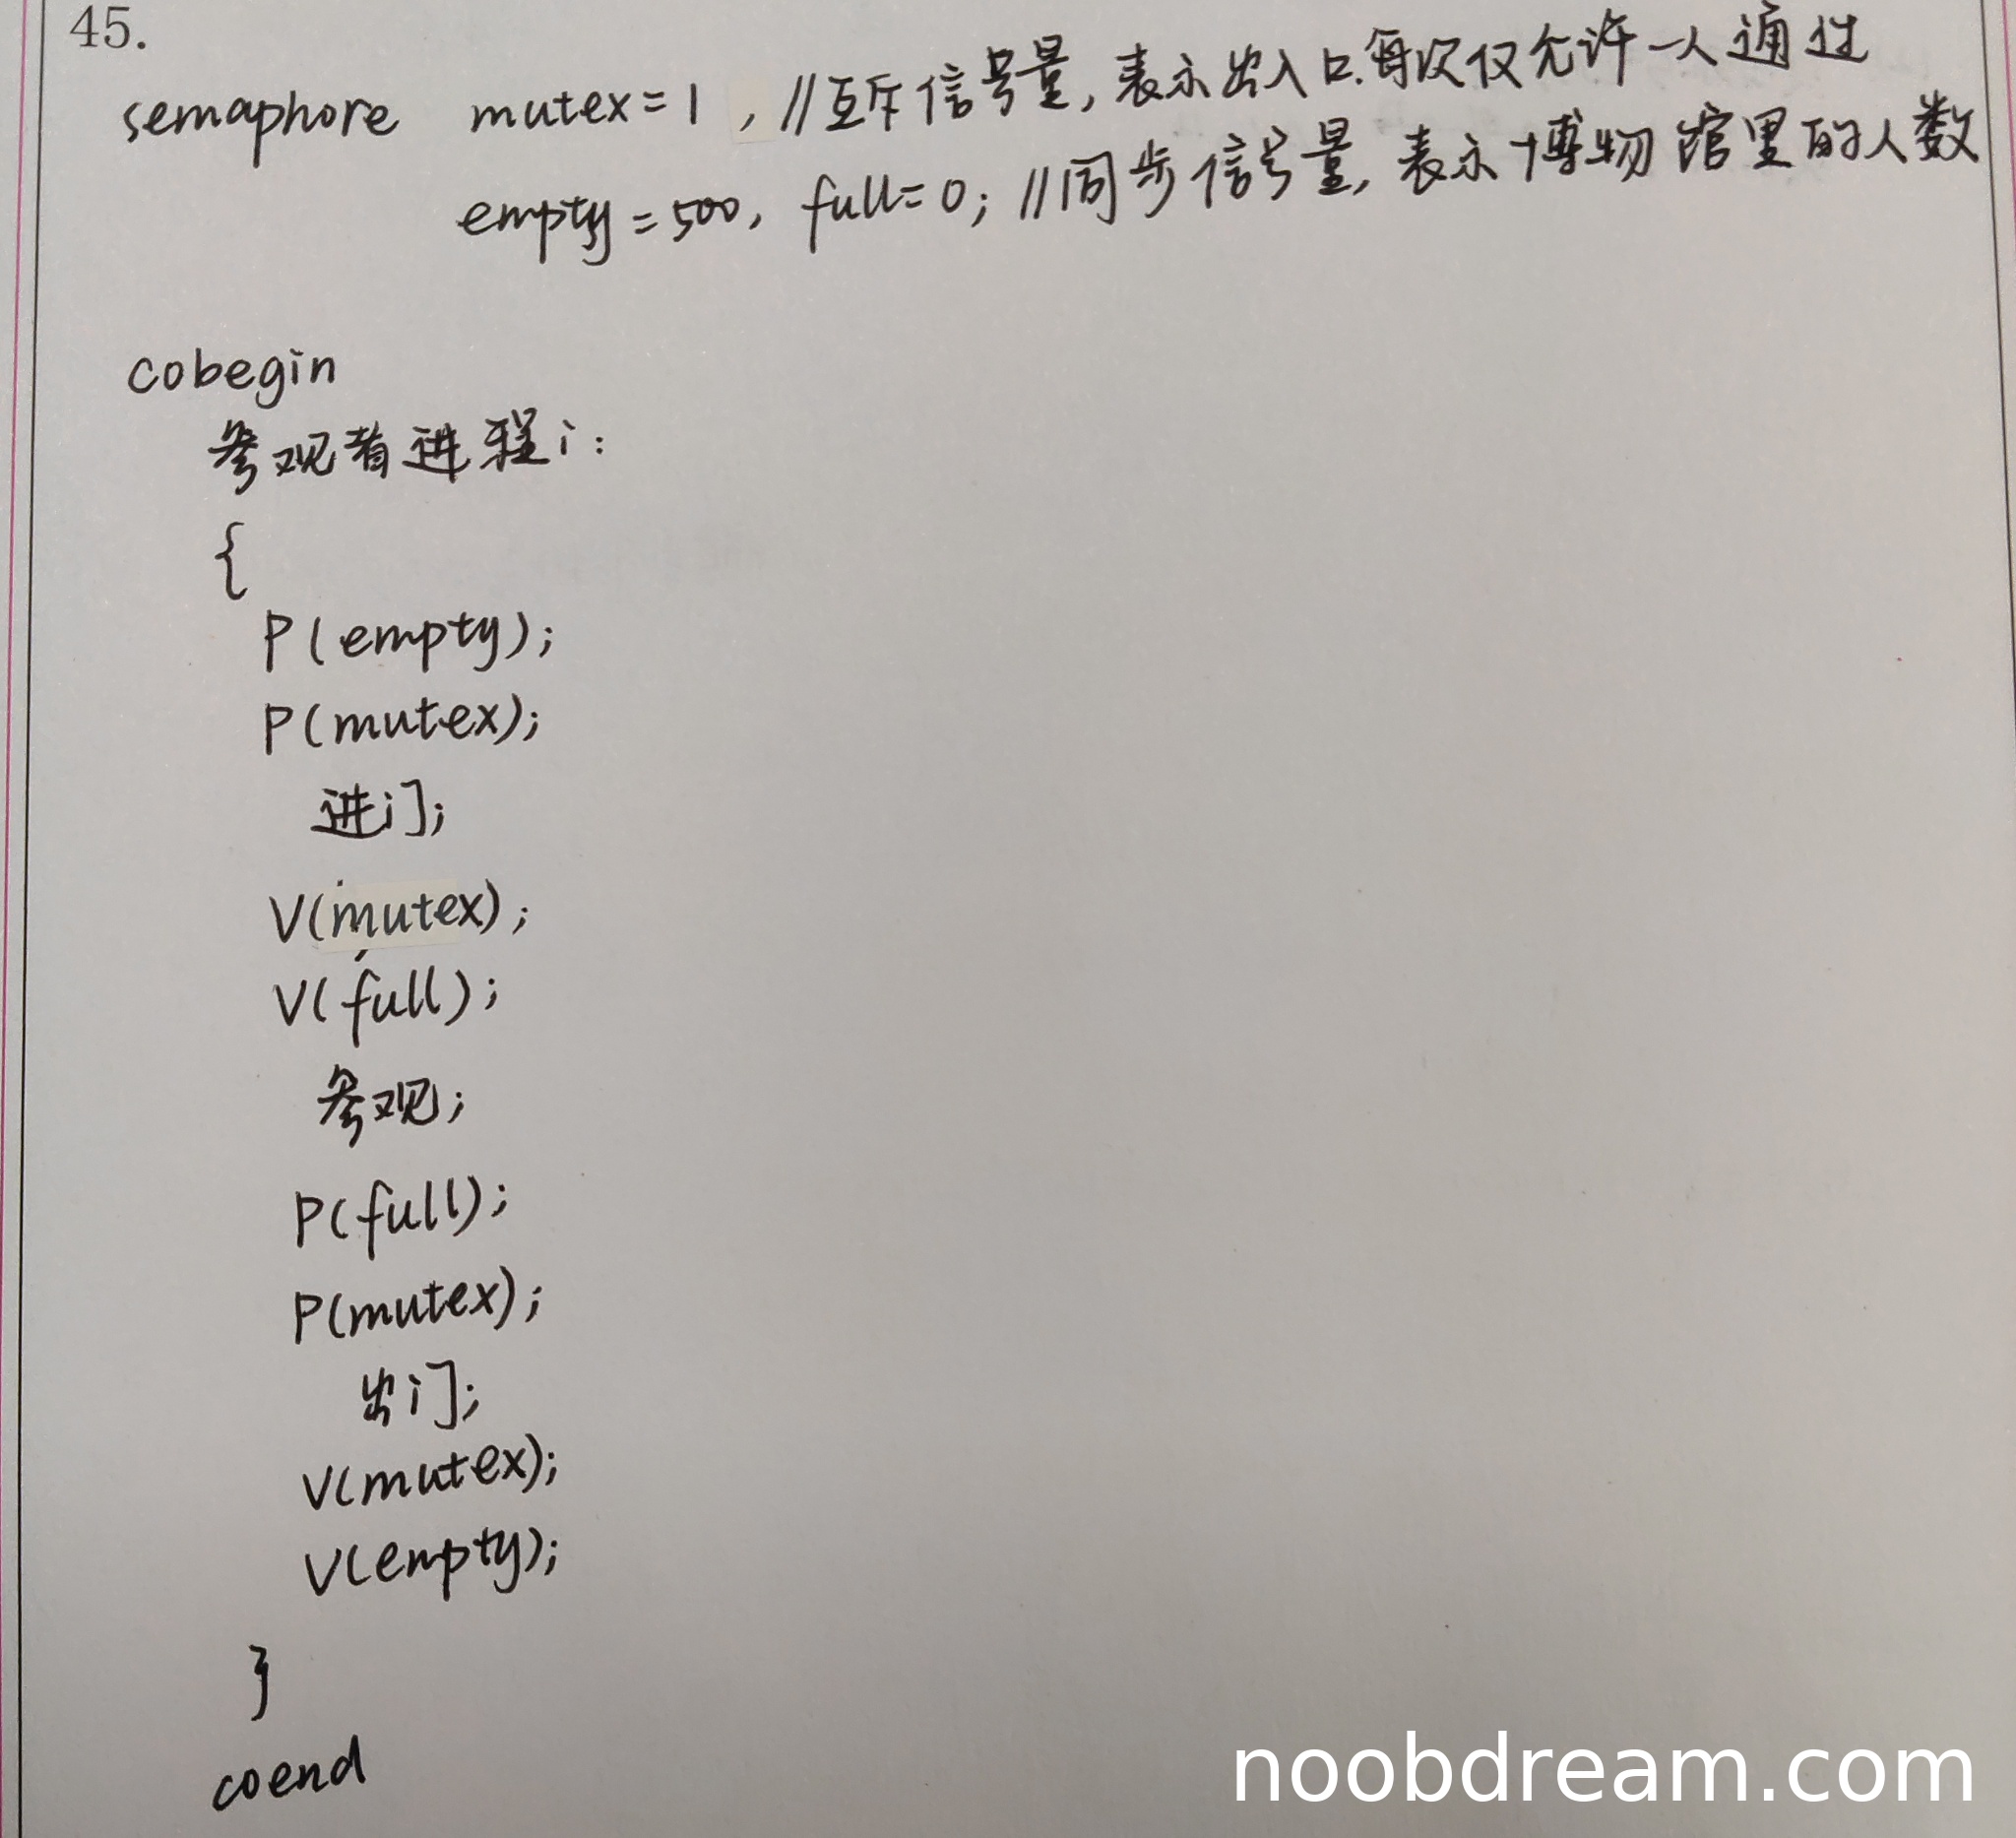 45.
semaphore mutex=1 , //互斥信号量, 表示出入口.每次仅允许一人通过
empty=500, full=0; //同步信号量, 表示博物馆里的人数
cobegin
参观者进程i:
{
P(empty);
P(mutex);
进门;
V(mutex);
V(full);
参观;
P(full);
P(mutex);
出门;
V(mutex);
V(empty);
}
coend
noobdream.com